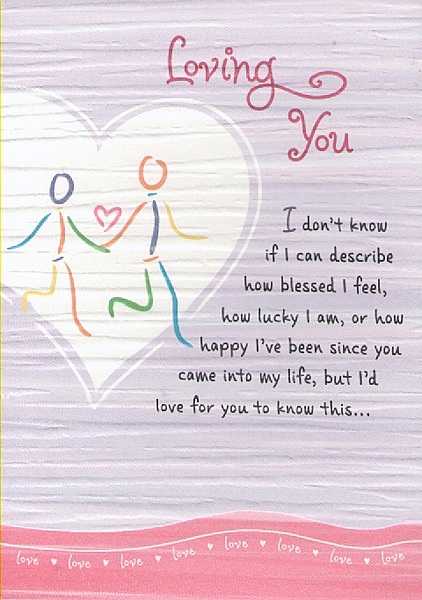 Loving
You
I don't know
if I can describe
how blessed I feel,
how lucky I am, or how
happy I've been since you
came into my life, but I'd
love for you to know this...
love ♥ love ♥ love ♥ love ♥ love ♥ love ♥ love ♥ love